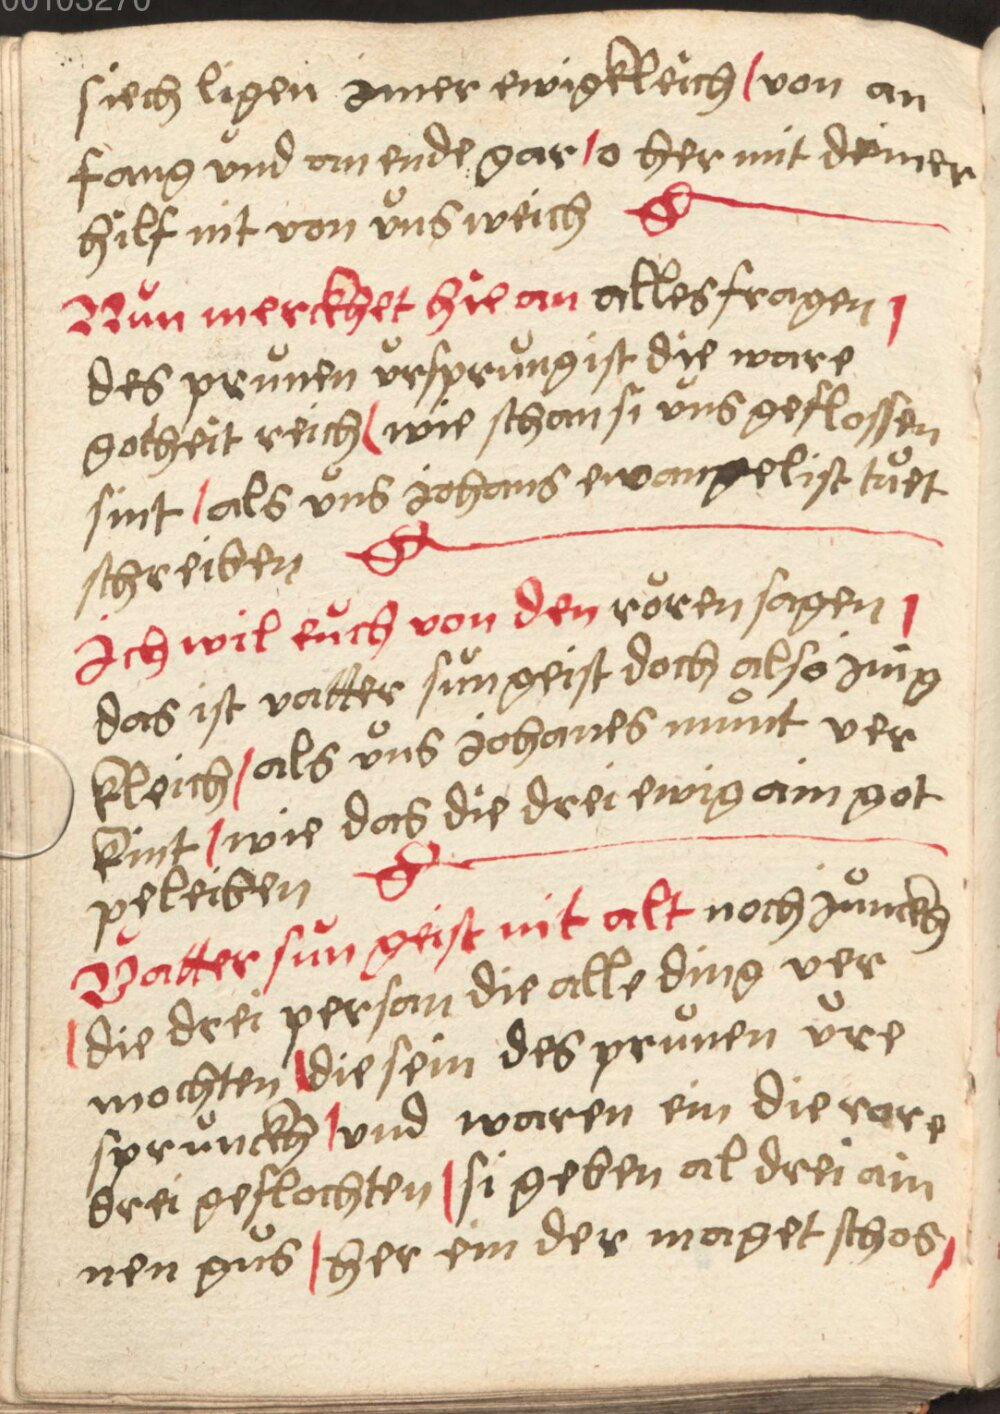 00103270
siech ligen imer ewigkleich / von an
fang vnd an ende gar / o her mit deiner
hilf nit von vns weich
Nun merckhet hie an alles fragen /
des prunen vrsprung ist die ware
gotheit reich / wie schan si vns geflossen
sint / als vns johans ewangelist tuet
schreiben
Ich wil euch von den roren sagen /
das ist vatter sun geist doch also inig
kleich / als vns johanes munt ver
kint / wie das die drei ewig ain got
peleiben
Vatter sun geist nit alt noch junckh
/ die drei person die alle ding ver
mochten / die sein des prunen vre
sprunckh / vnd waren ein die rore
drei geflochten / si geben al drei ain
nen gus / her ein der maget schos /